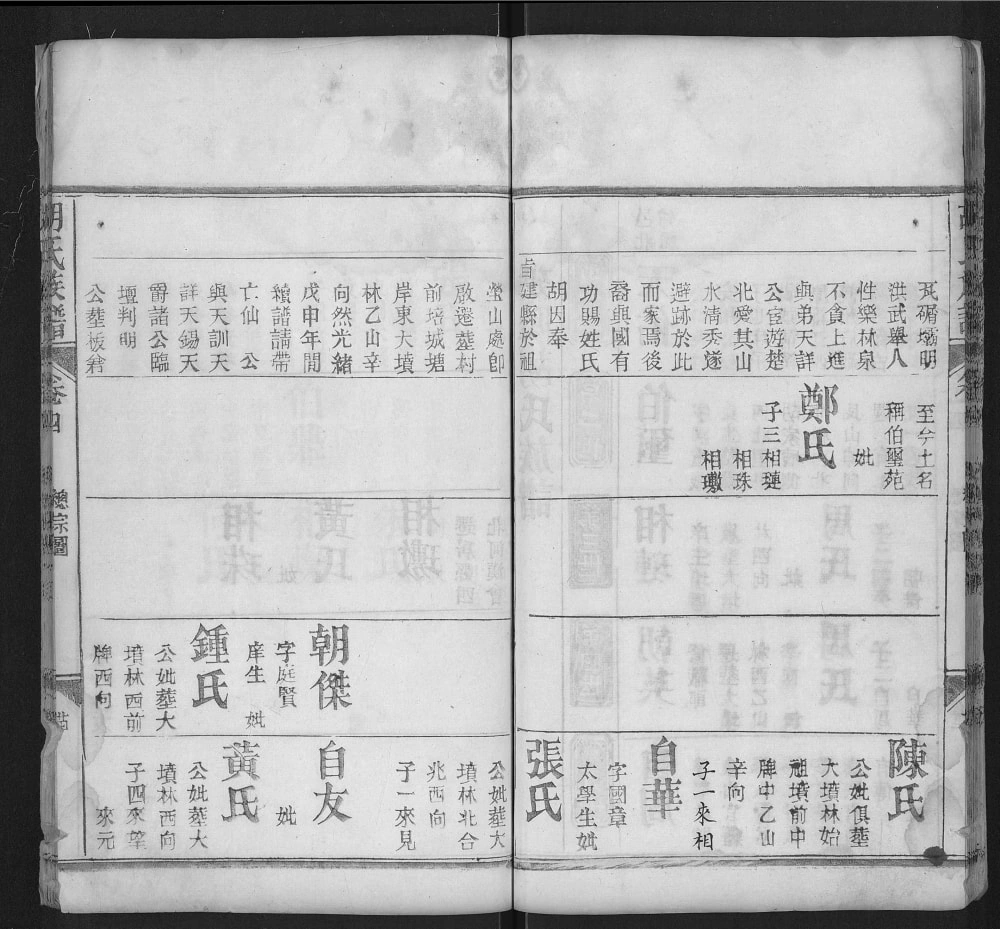 洪武舉人
性樂林泉
不貪上進
與弟天詳
公官遊楚
北愛其山
水清秀遂
避跡於此
而家焉後
裔與國有
功賜姓氏
胡因奉
旨建縣於祖
至今土名
稱伯璽苑
妣
鄭氏
子三相璉
相珠
相璥
陳氏
公妣俱葬
大墳林始
祖墳前中
牌中乙山
辛向
子一來相
自華
字國章
太學生妣
張氏
胡氏族譜
卷四
總宗圖
塋山處卽
啟遷葬村
前培城塘
岸東大墳
林乙山辛
向然光緒
戊申年間
續譜請帶
亡仙公
與天訓天
詳天錫天
爵諸公臨
壇判明
朝傑
字庭賢
庠生妣
鍾氏
公妣葬大
墳林西前
牌西向
公妣葬大
墳林北合
兆西向
子一來見
自友
妣
黃氏
公妣葬大
墳林西向
子四來望
來元